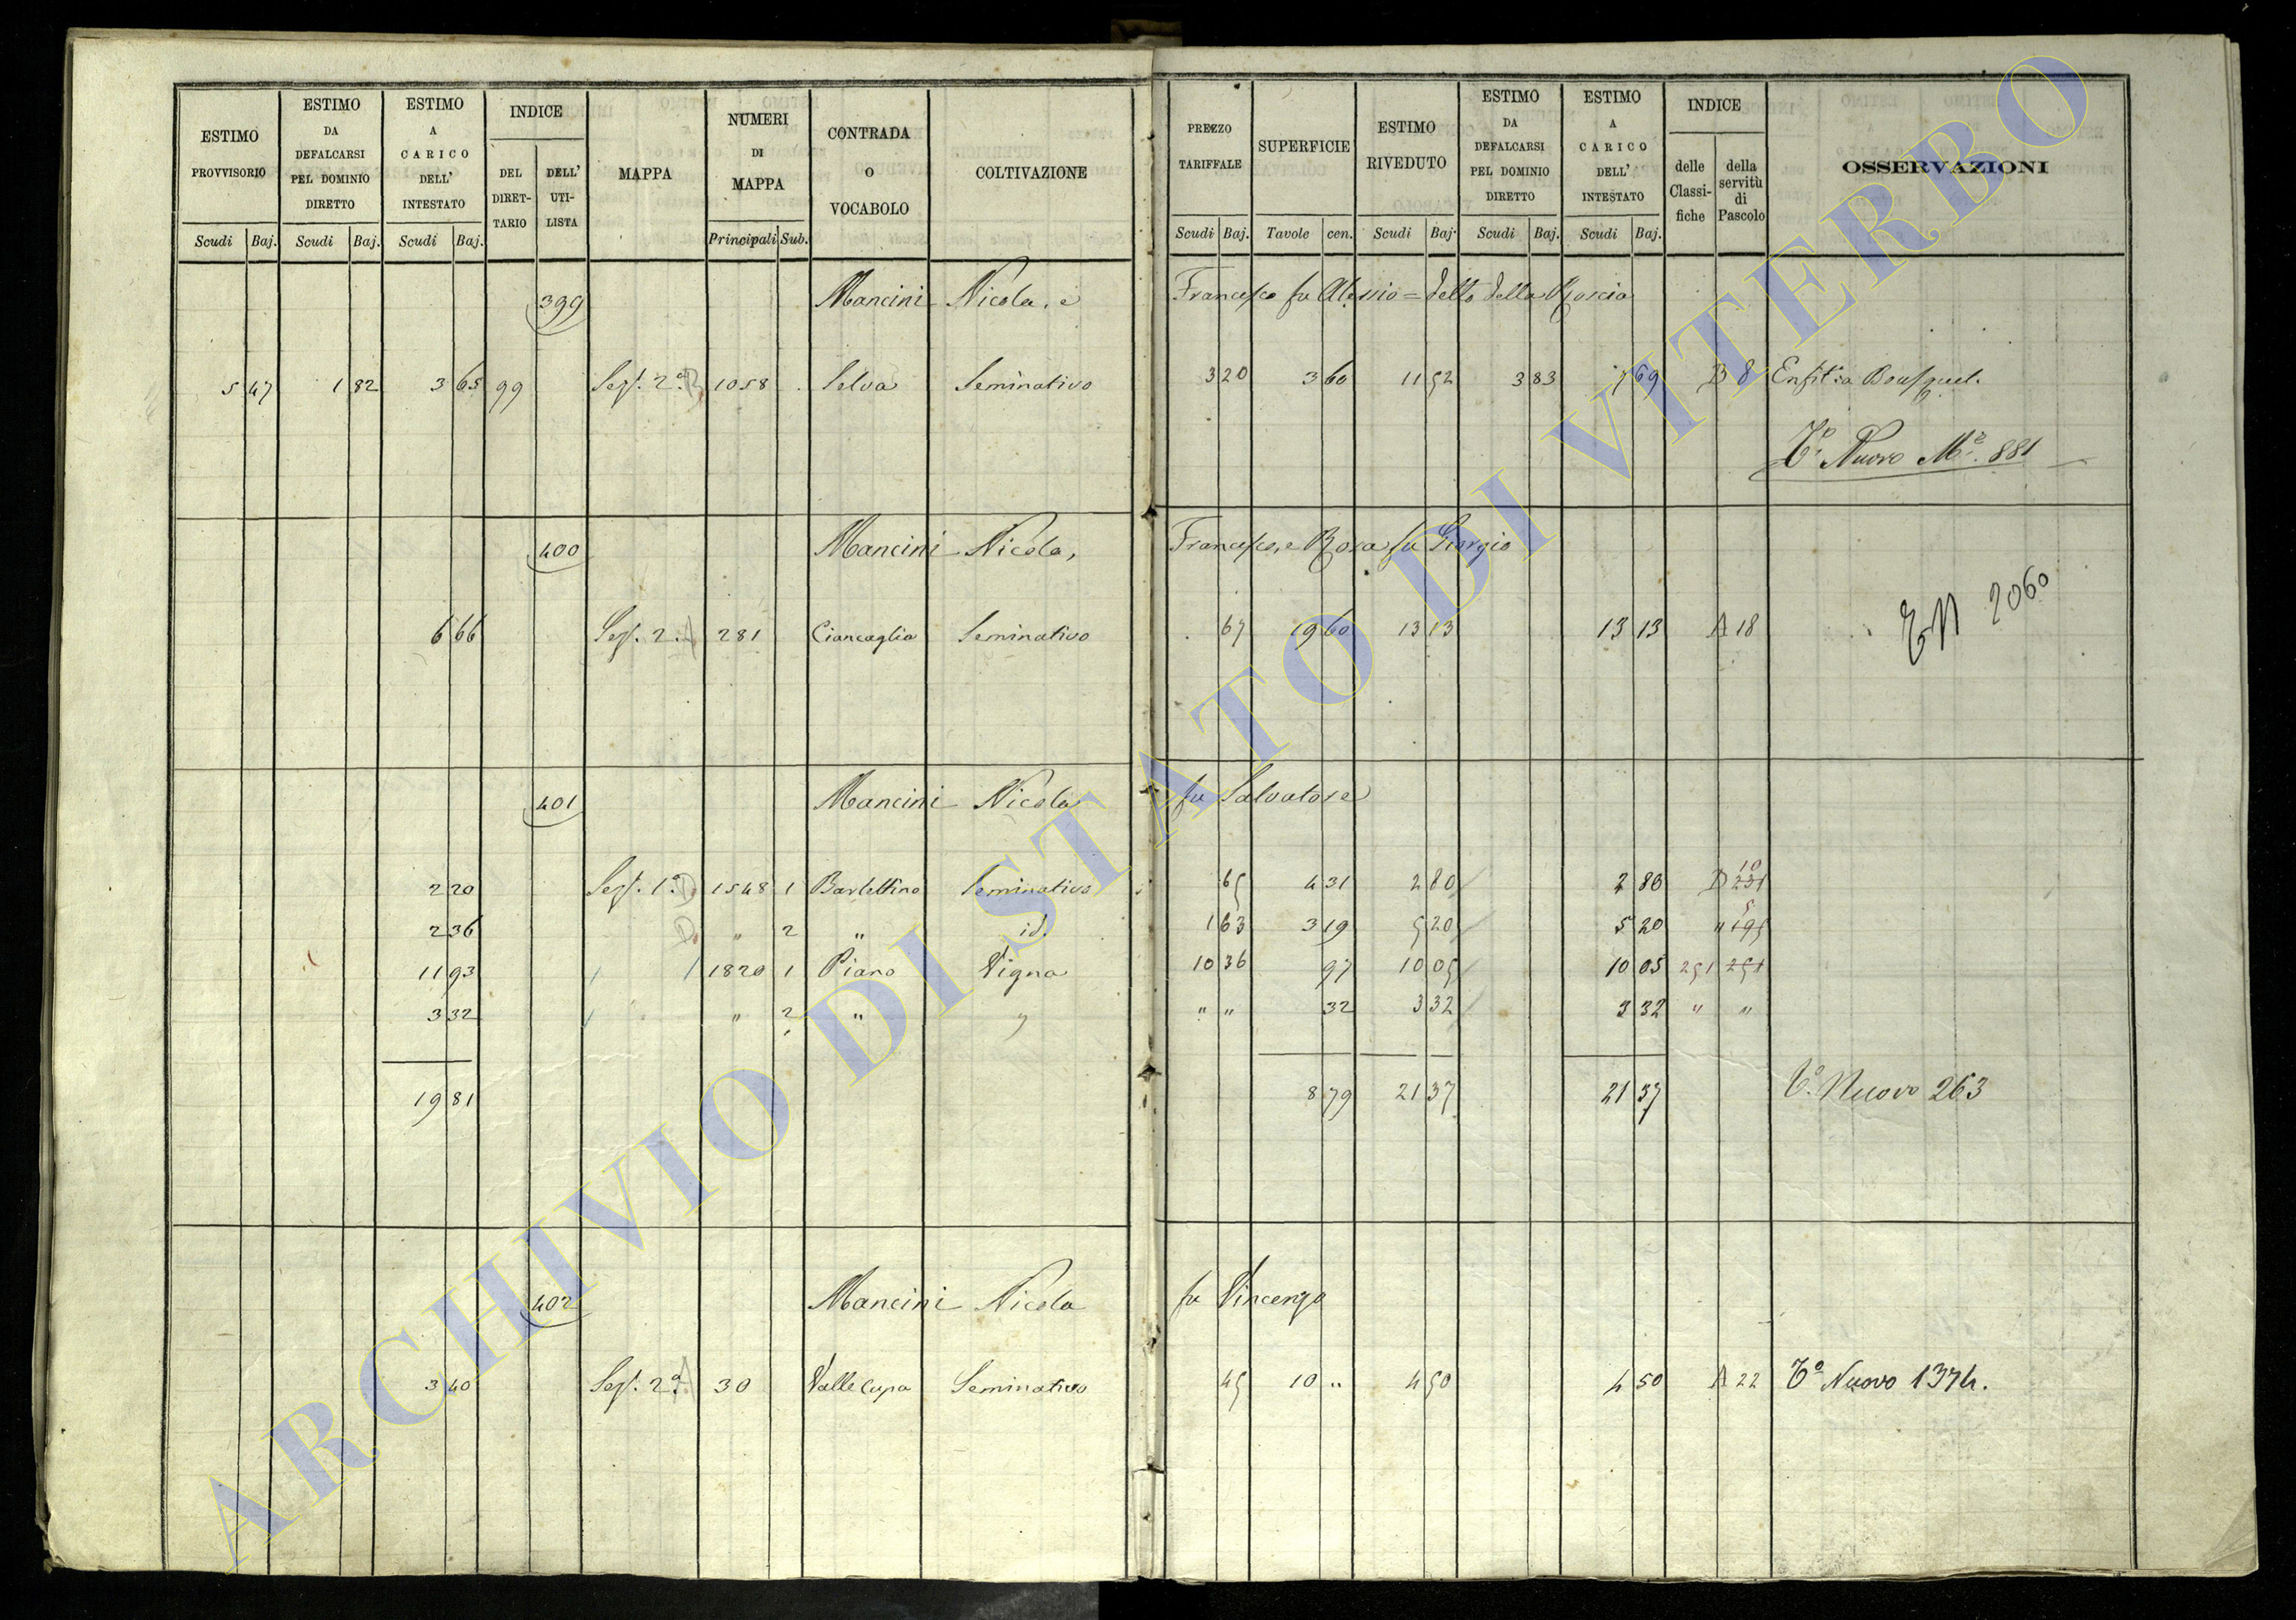 ESTIMO PROVVISORIO Scudi Baj.
ESTIMO DA DEFALCARSI PEL DOMINIO DIRETTO Scudi Baj.
ESTIMO A CARICO DELL' INTESTATO Scudi Baj.
INDICE DEL DIRET-TARIO DELL' UTI-LISTA
MAPPA
NUMERI DI MAPPA Principali Sub.
CONTRADA O VOCABOLO
COLTIVAZIONE
PREZZO TARIFFALE Scudi Baj.
SUPERFICIE Tavole cen.
ESTIMO RIVEDUTO Scudi Baj.
ESTIMO DA DEFALCARSI PEL DOMINIO DIRETTO Scudi Baj.
ESTIMO A CARICO DELL' INTESTATO Scudi Baj.
INDICE delle Classi-fiche della servitù di Pascolo
OSSERVAZIONI
399 Mancini Nicola, e Francesco fu Alessio = detto della Roscia
5 47 1 82 3 65 99 Sez. 2a B 1058 Selva Seminativo 3 20 3 60 11 52 3 83 7 69 B 8
To Nuovo 881
400 Mancini Nicola, Francesco, e Rosa fu Giorgio
6 66 Sez. 2 A 281 Ciancaglia Seminativo 67 19 60 13 13 13 13 A 18 TN 2060
401 Mancini Nicola fu Salvatore
2 20 Sez. 1a D 1548 1 Barlettino Seminativo 65 4 31 2 80 2 80 D 10 231
2 36 D " 2 " id. 1 63 3 19 5 20 5 20 " 5 195
11 93 1820 1 Piano Vigna 10 36 97 10 05 10 05 251 251
3 32 " 2 " " " " 32 3 32 3 32 " "
19 81 8 79 21 37 21 37 To Nuovo 263
402 Mancini Nicola fu Vincenzo
3 40 Sez. 2a A 30 Valle Cupa Seminativo 45 10 " 4 50 4 50 A 22 To Nuovo 1374.
ARCHIVIO DI STATO DI VITERBO